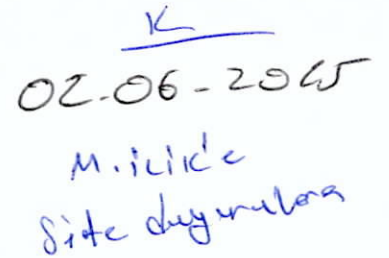 K
02-06-2015
M. ilik'e
Site duyurulara